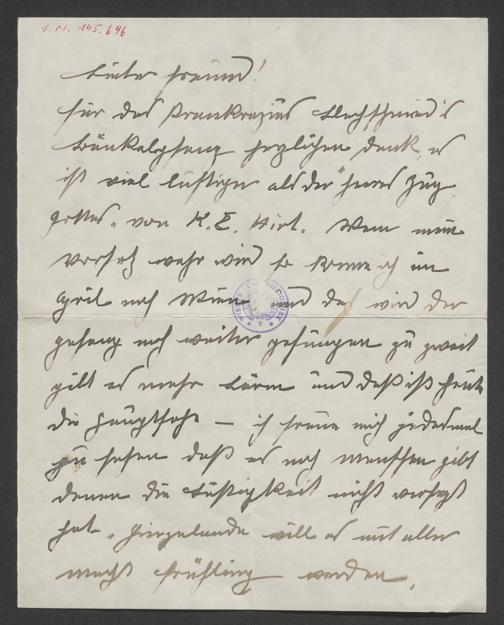 I.N. 145.696
Lieber Freund!
Für des Pankrazius
Bänkelgesang herzlichen Dank, es
ist viel lustiger als der "Heeres Zug
Gottes" von K. E. Hirt. Wenn mein
Vorsatz wahr wird so komme ich im
April nach Wien und da wird der
Gesang noch weiter gesungen zu zweit
gibt es mehr Lärm und daß ist heute
die Hauptsache — ich freue mich jedesmal
zu sehen daß es noch Menschen gibt
denen die Lustigkeit nicht versagt
hat. Hierzulande will es mit aller
Macht Frühling werden.